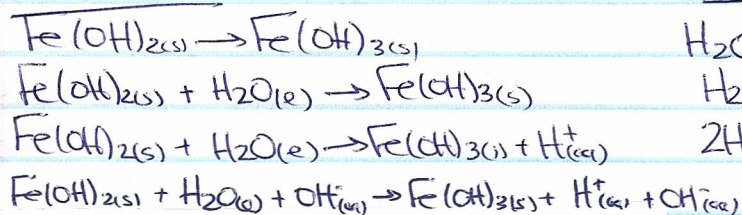 Fe(OH)2(s) → Fe(OH)3(s) H2O
Fe(OH)2(s) + H2O(l) → Fe(OH)3(s) H2
Fe(OH)2(s) + H2O(l) → Fe(OH)3(s) + H+(aq) 2H
Fe(OH)2(s) + H2O(l) + OH-(aq) → Fe(OH)3(s) + H+(aq) + OH-(aq)